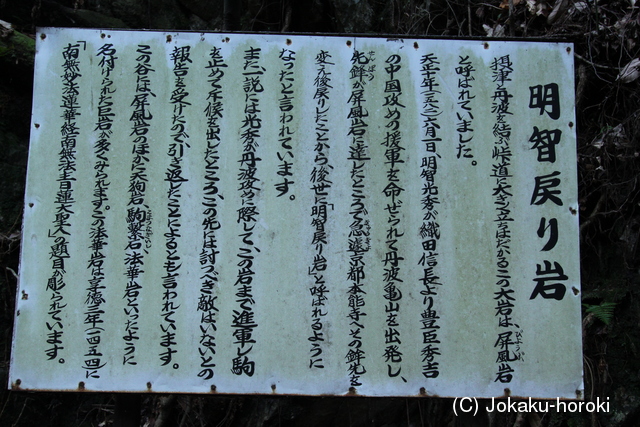 明智戻り岩
摂津と丹波を結ぶ峠道に大きく立ちはだかるこの大岩は、屏風岩
と呼ばれていました。
天正十年(一五八二)六月一日、明智光秀が織田信長より豊臣秀吉
の中国攻めの援軍を命ぜられて丹波亀山を出発し、
先鉾が屏風岩に達したところで急遽京都本能寺へとの鉾先を
変え後戻りしたことから後世に「明智戻り岩」と呼ばれるように
なったと言われています。
また一説には光秀が丹波攻めに際して、この岩まで進軍し駒
を止めて斥候を出したところ、この先には討つべき敵はいないとの
報告を受けたので引き返したことによるとも言われています。
この谷は、屏風岩のほかに天狗岩、駒繋岩、法華岩といったように
名付けられた巨岩が多くみられます。この法華岩は享徳三年(一四五四)に
「南無妙法蓮華経南無法主日蓮大聖人」の題目が彫られています。
(C) Jokaku-horoki